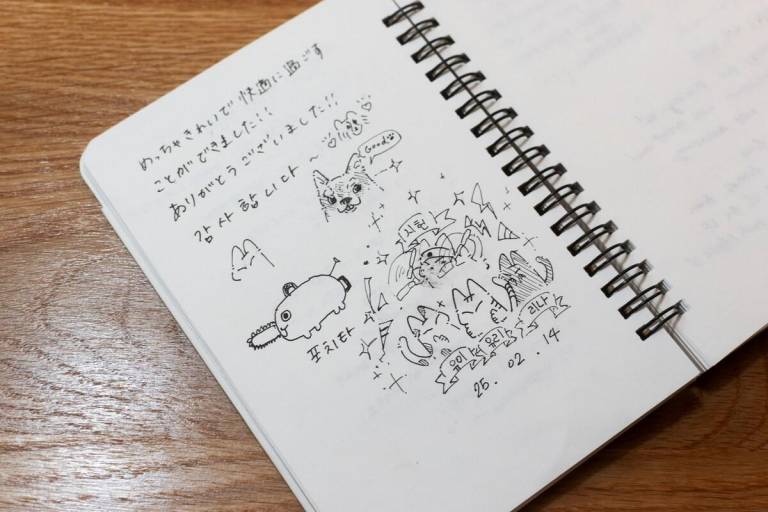 めっちゃきれいで快適に過ごす
ことができました!!
ありがとうございました!!
감사합니다~
Good
지헌
포치타
유이
유리
리나
25.02.14